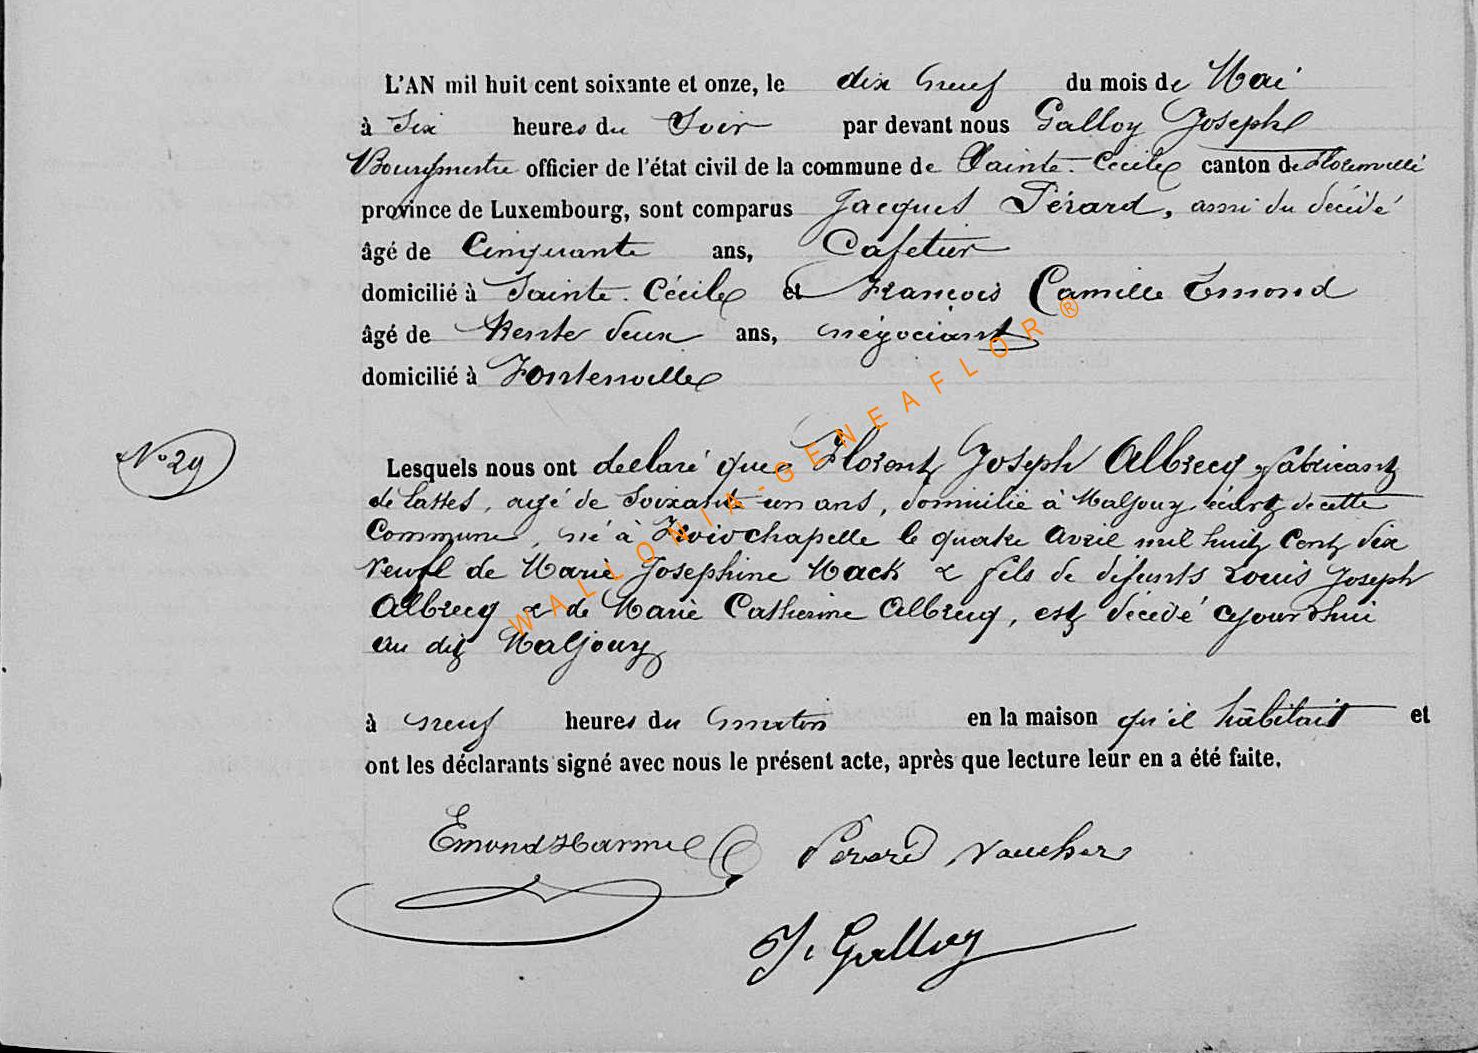 L'AN mil huit cent soixante et onze, le dix neuf du mois de Mai
à Six heures du Soir par devant nous Galloy Joseph
Bourgmestre officier de l'état civil de la commune de Sainte-Cécile canton de Florenville
province de Luxembourg, sont comparus Jacques Pérard, ami du décédé
âgé de Cinquante ans, Cafetier
domicilié à Sainte-Cécile et François Camille Emond
âgé de trente deux ans, négociant
domicilié à Fontenville
N° 29
Lesquels nous ont déclaré que Florent Joseph Albrecq fabricant
de lattes, agé de Soixante un ans, domicilié à Maljouy écart de cette
Commune, né à Froidchapelle le quatre Avril mil huit Cent dix
Veuf de Marie Josephine Mack & fils de défunts Louis Joseph
Albrecq & de Marie Catherine Albrecq, est décédé cejourd'hui
au dit Maljouy
à neuf heures du matin en la maison qu'il habitait et
ont les déclarants signé avec nous le présent acte, après que lecture leur en a été faite.
Emond Harmel Pérard Vaucher
J. Galloy
WALLONIA-GENEAFLOR®